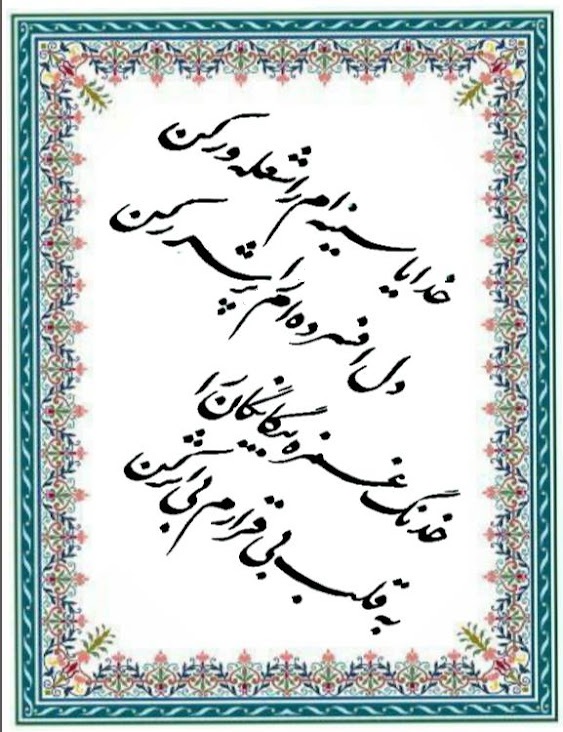 خدایا سینه ام را شعله ور کن
دل افسرده ام را پر شرر کن
خدنگ غمزه بیگانگان را
به قلب بی قرارم بی اثر کن